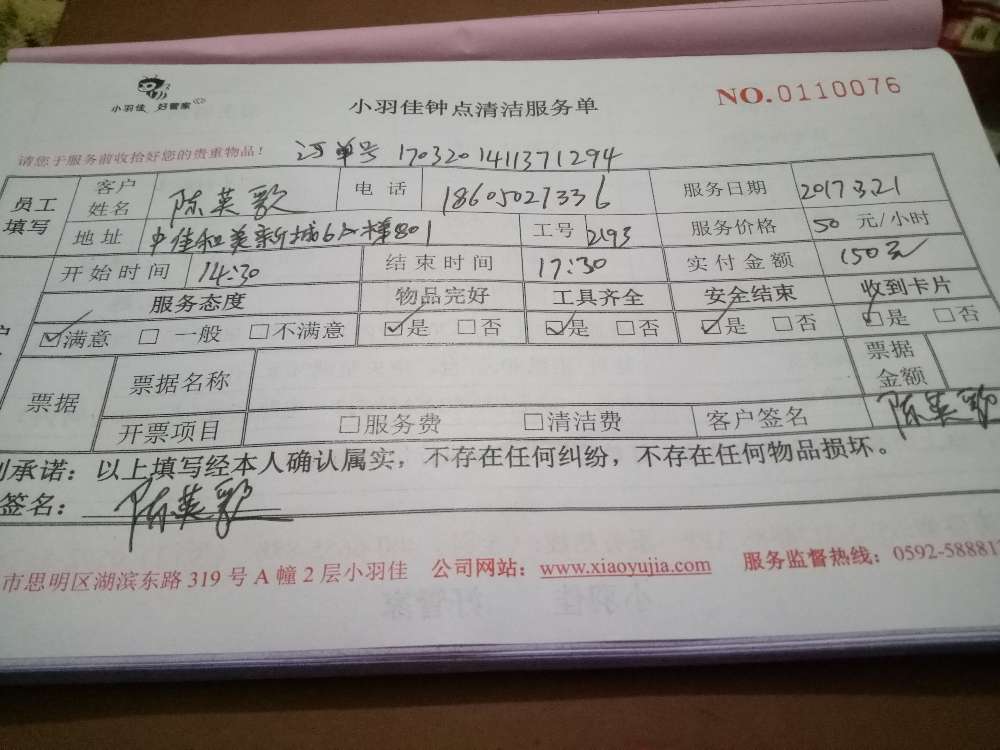 小羽佳 好管家
小羽佳钟点清洁服务单
NO.0110076
请您于服务前收拾好您的贵重物品！
订单号 1703201411371294
员工填写 客户姓名 陈英歌 电话 18605027336 服务日期 2017.3.21
地址 中佳和美新城6 栋801 工号 2193 服务价格 50 元/小时
开始时间 14:30 结束时间 17:30 实付金额 150元
服务态度 物品完好 工具齐全 安全结束 收到卡片
☑满意 □一般 □不满意 ☑是 □否 ☑是 □否 ☑是 □否 ☑是 □否
票据 票据名称 票据金额
开票项目 □服务费 □清洁费 客户签名 陈英歌
承诺：以上填写经本人确认属实，不存在任何纠纷，不存在任何物品损坏。
签名：陈英歌
市思明区湖滨东路 319 号 A 幢 2 层小羽佳 公司网站：www.xiaoyujia.com 服务监督热线：0592-58881